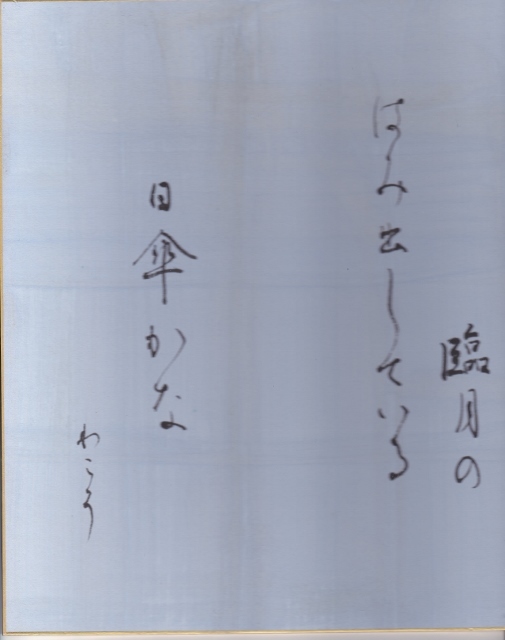 臨月の
はみ出している
日傘かな
わこう